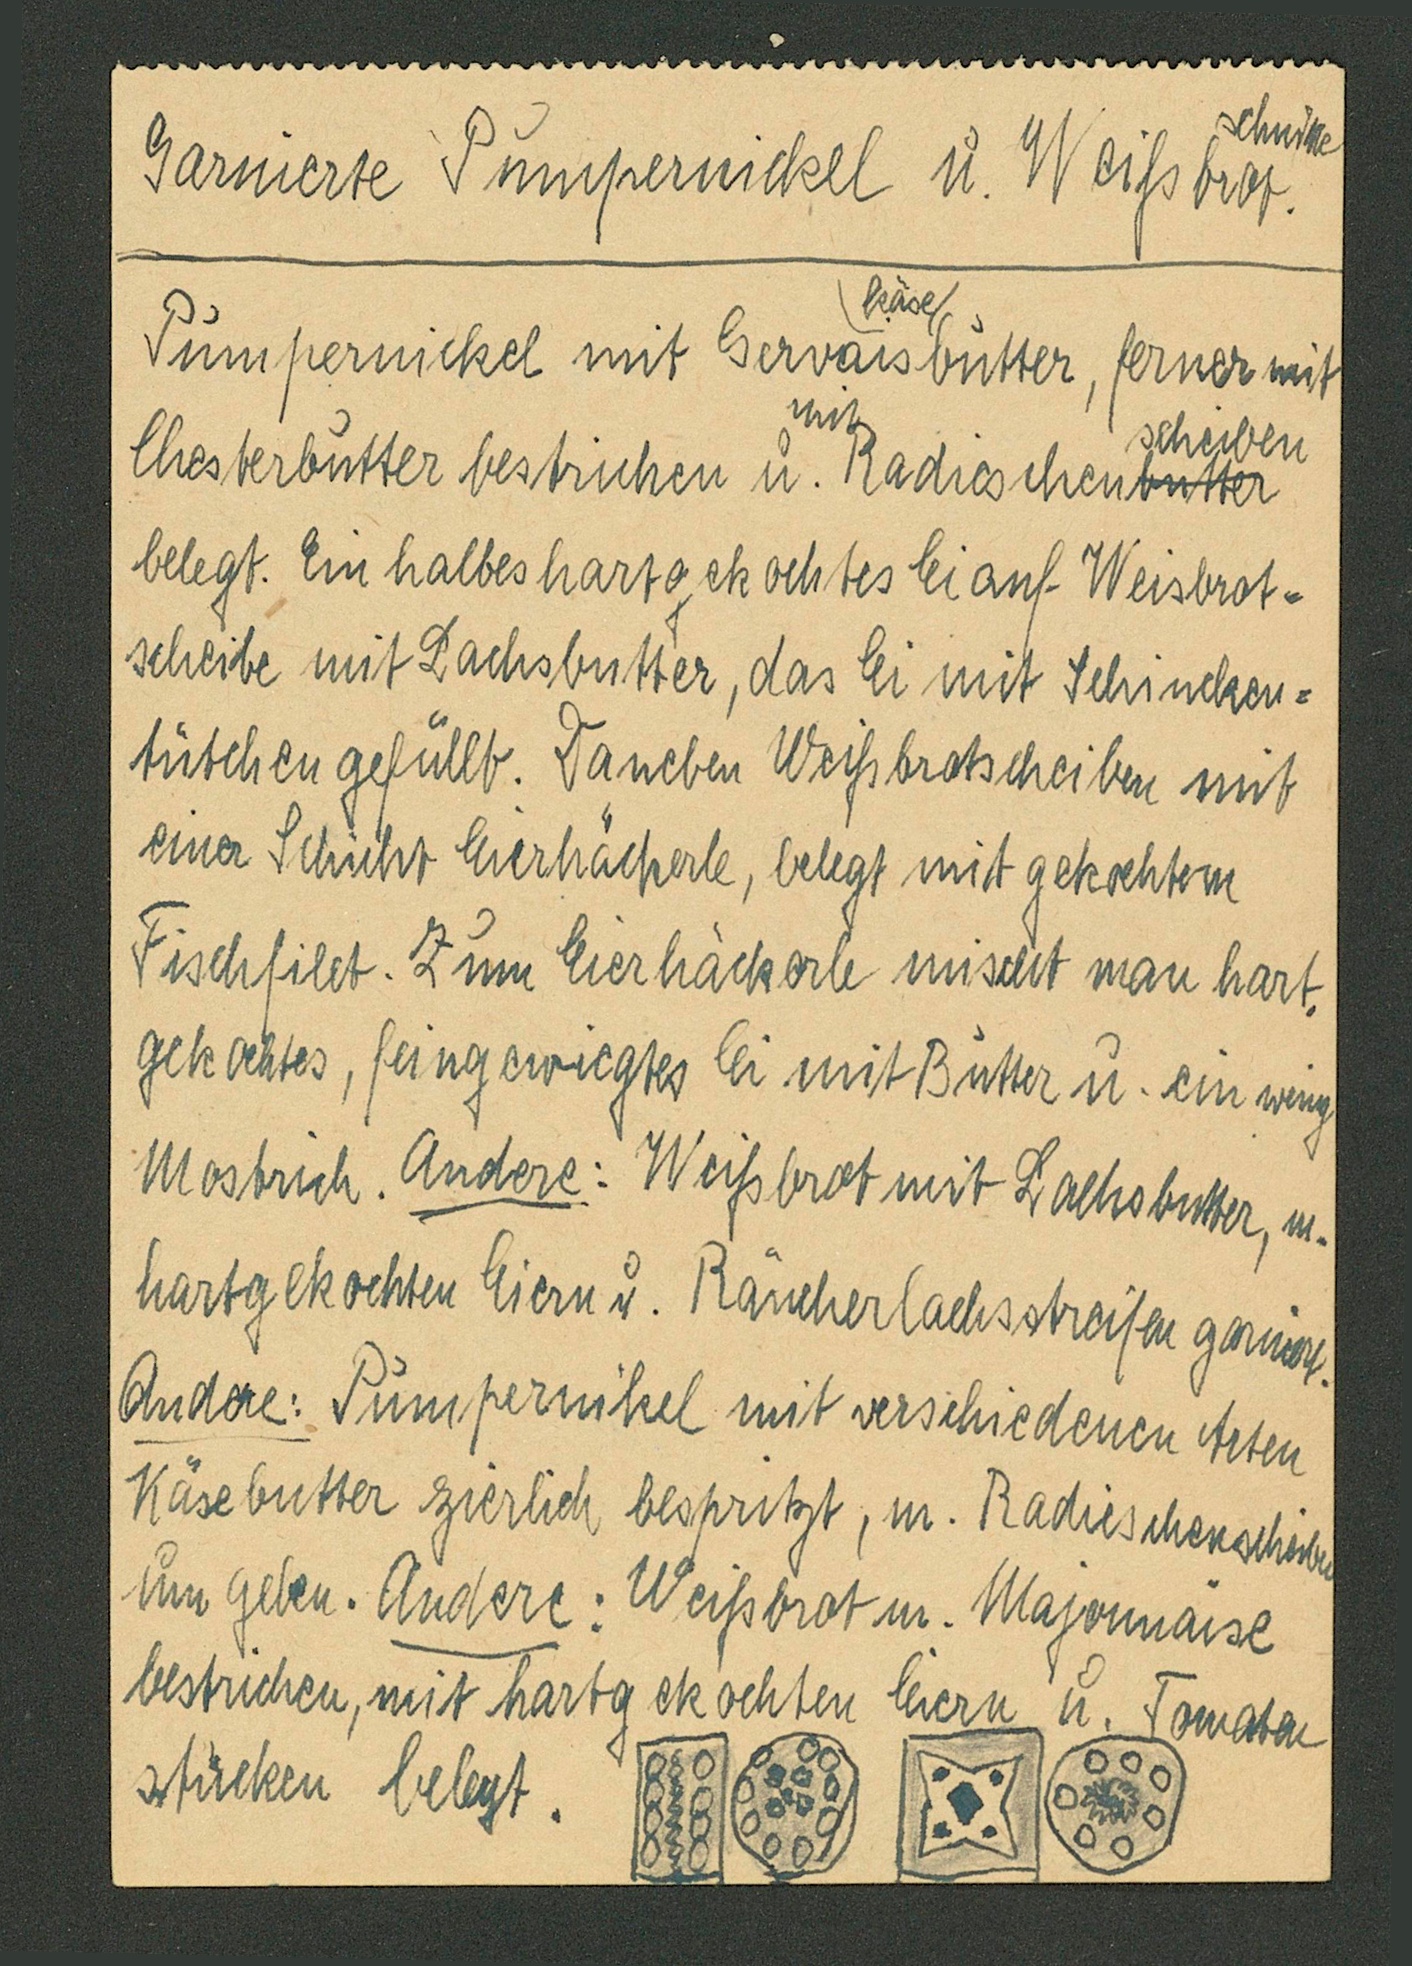 Garnierte Pumpernickel u. Weißbrotschnitte.
Pumpernickel mit Gervais(käse)butter, ferner mit
Chesterbutter bestrichen u. mit Radieschenbutter scheiben
belegt. Ein halbes hartgekochtes Ei auf Weisbrot=
scheibe mit Lachsbutter, das Ei mit Schincken=
tütchen gefüllt. Daneben Weißbrotscheiben mit
einer Schicht Eierhäckerle, belegt mit gekochtem
Fischfilet. Zum Eierhäckerle mischt man hart,
gekochtes, feingewiegtes Ei mit Butter u. ein wenig
Mostrich. Andere: Weißbrot mit Lachsbutter, m.
hartgekochten Eiern u. Räucherlachsstreifen garniert.
Andere: Pumpernikel mit verschiedenen Arten
Käsebutter zierlich bespritzt, m. Radieschenscheiben
umgeben. Andere: Weißbrot m. Majonnaise
bestrichen, mit hartgekochten Eiern u. Tomaten
stücken belegt.